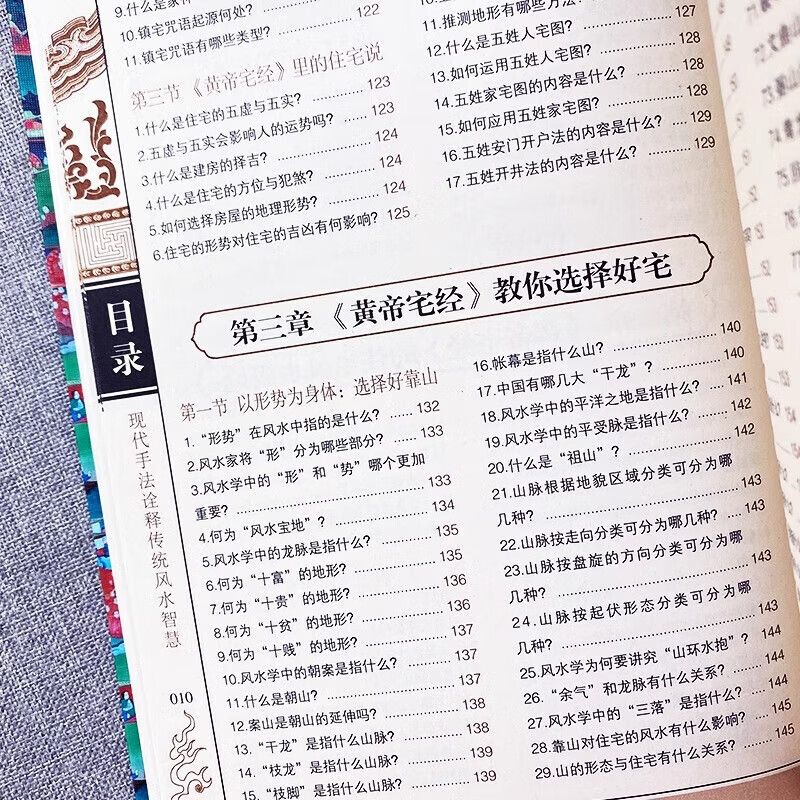 9.什么是家神
10.镇宅咒语起源何处? …… 122
11.镇宅咒语有哪些类型?
第三节 《黄帝宅经》里的住宅说
1.什么是住宅的五虚与五实? …… 123
2.五虚与五实会影响人的运势吗? …… 123
3.什么是建房的择吉? …… 124
4.什么是住宅的方位与犯煞? …… 124
5.如何选择房屋的地理形势? …… 124
6.住宅的形势对住宅的吉凶有何影响? 125
11.推测地形有哪些方法?
12.什么是五姓人宅图? …… 127
13.如何运用五姓人宅图? …… 128
14.五姓家宅图的内容是什么? …… 128
15.如何应用五姓家宅图? …… 128
16.五姓安门开户法的内容是什么? …… 129
17.五姓开井法的内容是什么? …… 129
第三章 《黄帝宅经》教你选择好宅
第一节 以形势为身体：选择好靠山
1.“形势”在风水中指的是什么? …… 132
2.风水家将“形”分为哪些部分? …… 133
3.风水学中的“形”和“势”哪个更加
重要? …… 133
4.何为“风水宝地”? …… 134
5.风水学中的龙脉是指什么? …… 135
6.何为“十富”的地形? …… 135
7.何为“十贵”的地形? …… 136
8.何为“十贫”的地形? …… 136
9.何为“十贱”的地形? …… 137
10.风水学中的朝案是指什么? …… 137
11.什么是朝山? …… 137
12.案山是朝山的延伸吗? …… 138
13.“干龙”是指什么山脉? …… 138
14.“枝龙”是指什么山脉? …… 139
15.“枝脚”是指什么山脉? …… 139
16.帐幕是指什么山? …… 140
17.中国有哪几大“干龙”? …… 140
18.风水学中的平洋之地是指什么? …… 141
19.风水学中的平受脉是指什么? …… 142
20.什么是“祖山”? …… 142
21.山脉根据地貌区域分类可分为哪
几种? …… 143
22.山脉按走向分类可分为哪几种? … 143
23.山脉按盘旋的方向分类可分为哪
几种? …… 143
24.山脉按起伏形态分类可分为哪
几种? …… 143
25.风水学为何要讲究“山环水抱”? 144
26.“余气”和龙脉有什么关系? …… 144
27.风水学中的“三落”是指什么? …… 144
28.靠山对住宅的风水有什么影响? … 145
29.山的形态与住宅有什么关系? …… 145
目录
现代手法诠释传统风水智慧
010